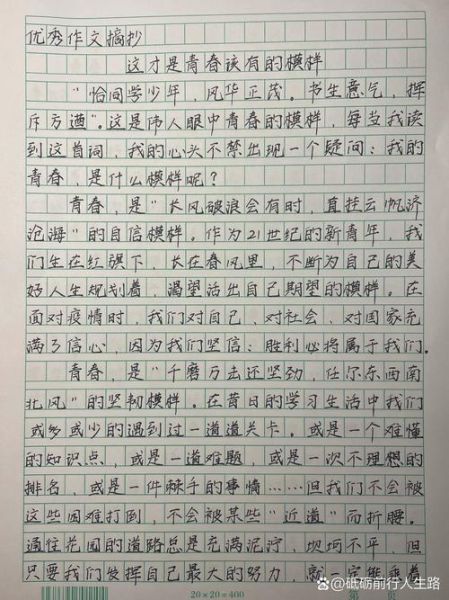 优秀作文摘抄
这才是青春该有的模样
"恰同学少年，风华正茂。书生意气，挥
斥方遒"。这是伟人眼中青春的模样，每当我读
到这首词，我的心头不禁出现一个疑问：我的
青春，是什么模样呢？
青春，是"长风破浪会有时，直挂云帆济
沧海"的自信模样。作为21世纪的新青年，我
们生在红旗下，长在春风里，不断为自己的美
好人生规划着，渴望活出自己期望的模样。在
面对疫情时，我们对自己、对社会、对国家充
满了信心，因为我们坚信：胜利必将属于我们。
青春，是"千磨万击还坚劲，任尔东西南
北风"的坚韧模样。在昔日的学习生活中我们
或多或少的遇到过一道道关卡。或是一个难懂
的知识点，或是一道难题，或是一次不理想的
排名，或是一件棘手的事情……但我们不会被
这些困难打倒，不会被某些"近道"而折腰。
通往花园的道路总是充满泥泞，坎坷不平，但
只要我们发挥自己最大的努力，就一定能乘着
20×20=400
第
@砥砺前行人生路